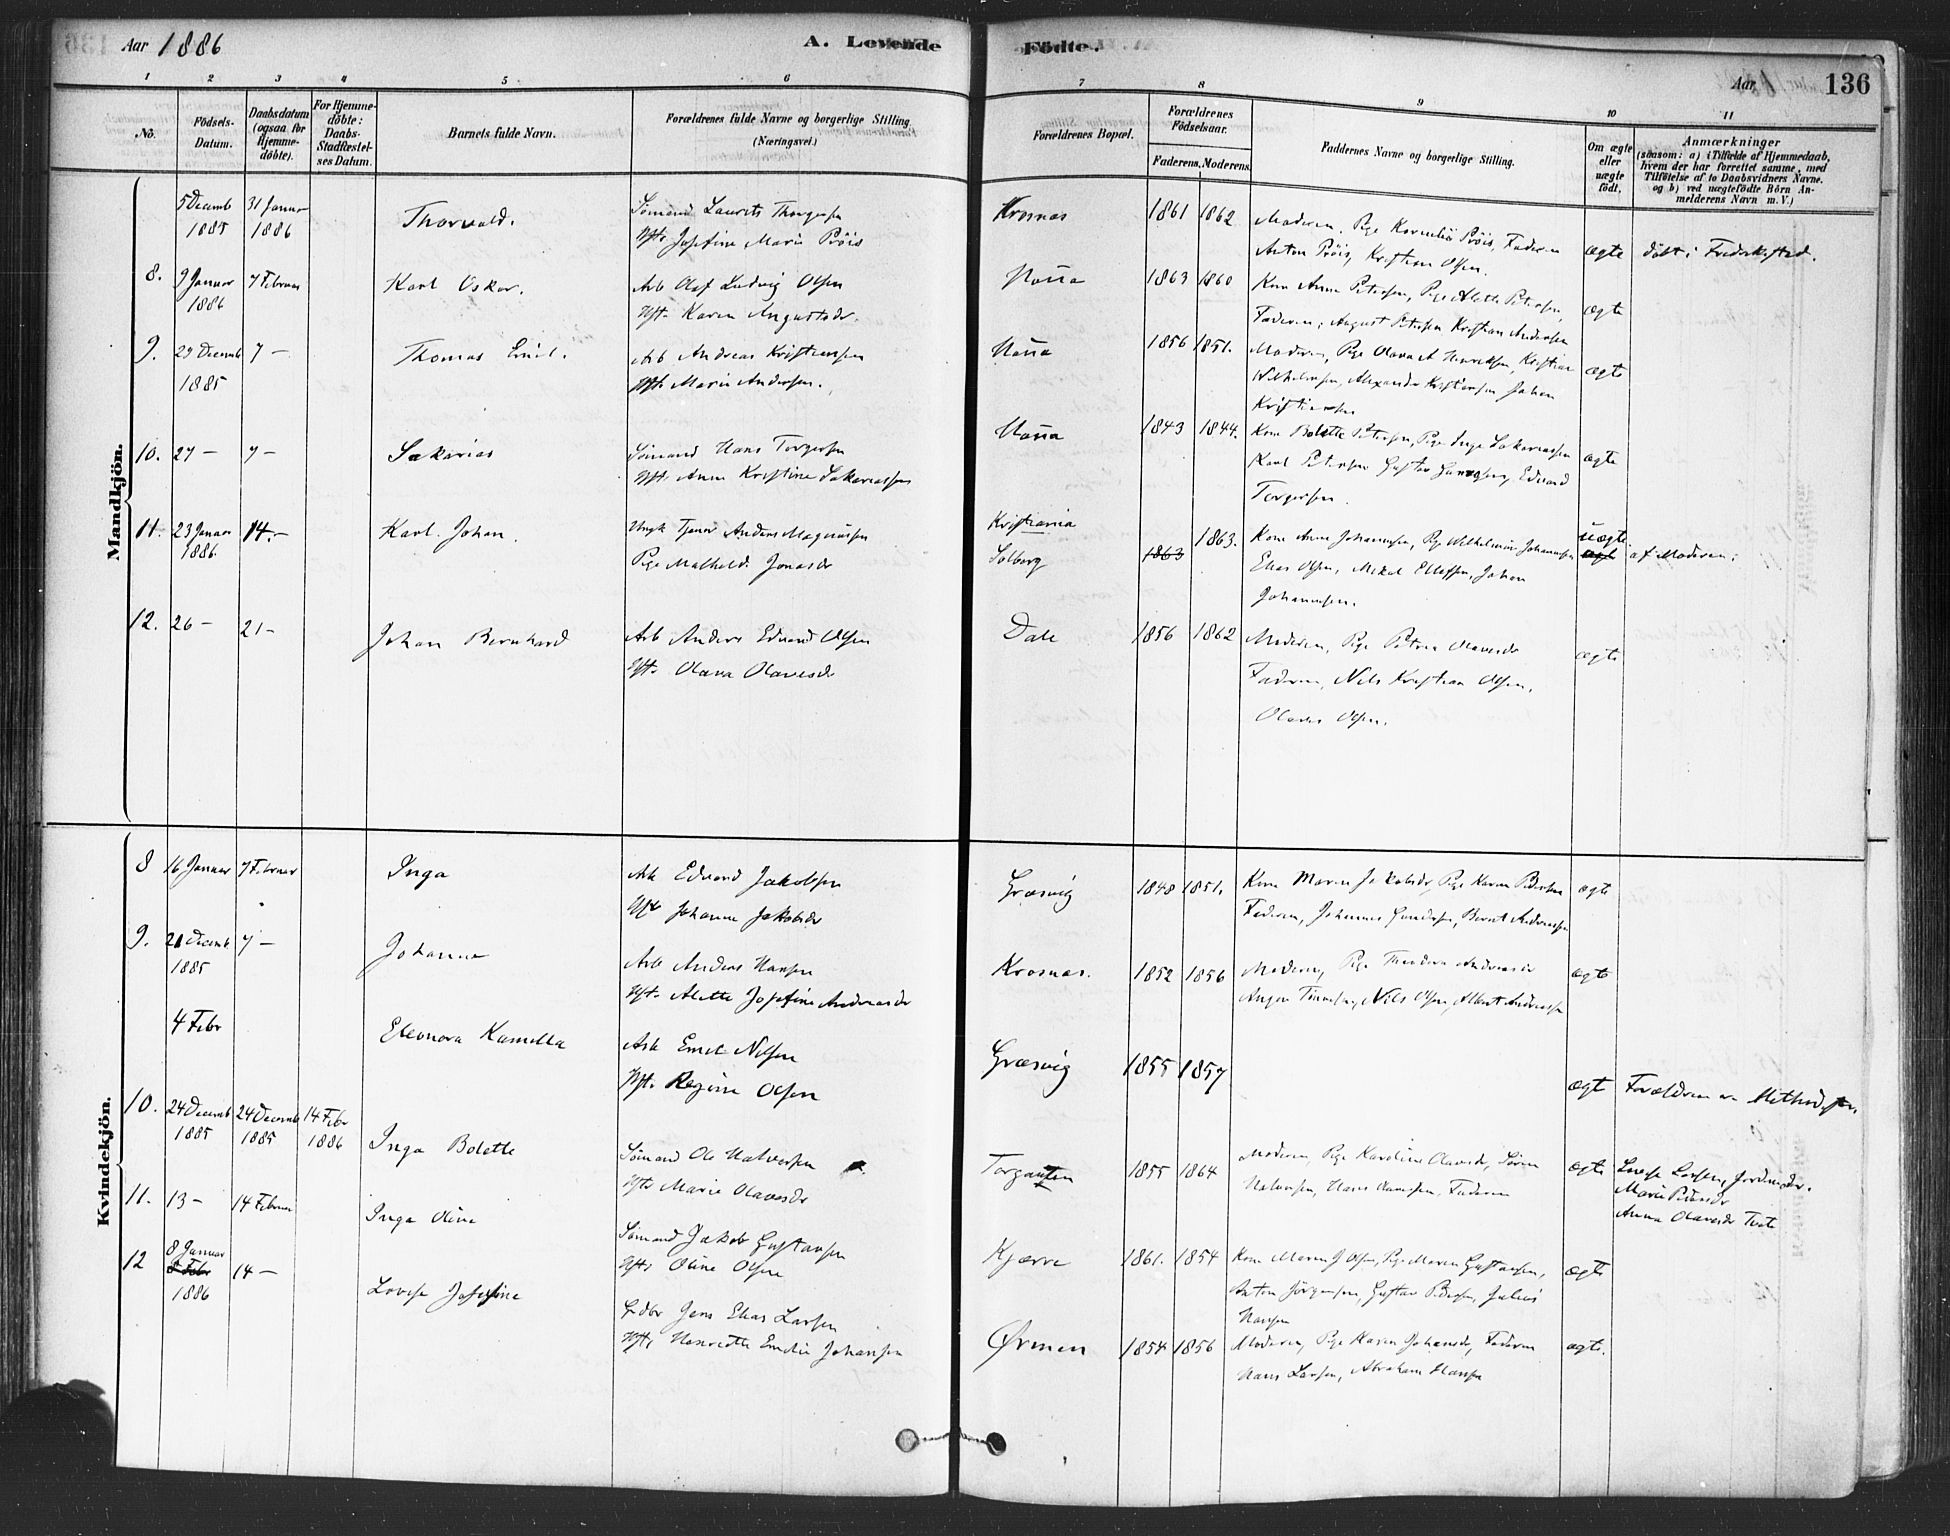 Aar 1886
A. Levende
Fødte.
Aar
136
1 2 3 4 5 6 7 8 9 10 11
No.
Fødsels-
Datum.
Daabsdatum
(ogsaa for
Hjemme-
døbte).
For Hjemme-
døbte:
Daabs-
Stadfæstel-
ses Datum.
Barnets fulde Navn.
Forældrenes fulde Navne og borgerlige Stilling
(Næringsvei.)
Forældrenes Bopæl.
Forældrenes
Fødselsaar.
Faderens. Moderens.
Faddernes Navne og borgerlige Stilling.
Om ægte
eller
uægte
født.
Anmærkninger
(saasom: a) i Tilfælde af Hjemmedaab,
hvem der har forrettet samme, med
Tilføielse af to Daabsvidners Navne.
og b) ved uægtefødte Børn An-
melderens Navn m. V.)
Mandkjön.
5 Decemb 31 Januar
1885 1886
Thorvald.
Sømand Laurits Thorgersen
Hst. Josefine Marie Prøis
Krosnæs 1861 1862
Moderen, Pige Kornelia Prøis, Faderen
Anton Prøis, Kristian Olsen.
ægte
døbt i Fredrikstad.
8. 9 Januar 7 Februar
1886
Karl Oskar.
Arb Olaf Ludvig Olsen
Hst. Karen Augustsdr.
1863 1860
Kone Anne Petersen, Pige Alette Petersen,
Faderen, August Petersen Kristian Andersen
ægte
9. 29 Decemb 7 —
1885
Thomas Emil.
Arb Andreas Kristiansen
Hst. Marie Andersen.
1856 1851.
Moderen, Pige Olava A Henriksen, Kristian
Wilhelmsen, Alexander Kristiansen Johan
Kristiansen
ægte
10. 27 — 7 —
Sakarias
Sømand Hans Torgersen
Hst. Anne Kristine Sakariassen
1843 1844.
Kone Bolette Petersen, Pige Inga Sakariassen
Karl Petersen Gustav Edvard
Torgersen.
ægte
11. 23 Januar 14. —
1886
Karl Johan.
Ungk Tjener Anders Magnussen
Pige Mathilde Jonasdr
Kristiania
Solberg 1863 1863.
Kone Anne Johannesen, Pige Wilhelmine Johannesen
Elias Olsen, Mikal Ellefsen, Johan
Johannesen.
uægte
ægte
af Moderen.
12. 26 — 21 —
Johan Bernhard
Arb Anders Edvard Olsen
Hst. Olava Olavesdr
Dale 1856 1862
Moderen, Pige Petrea Olavesdr
Faderen, Nils Kristian Olsen,
Olaves Olsen.
ægte
Kvindekjön.
8 16 Januar 7 Februar
Inga
Arb Edvard Jakobsen
Hst Johanne Jakobsdr
Græsvig 1848 1851.
Kone Maren Jakobsdr, Pige Karen Pedersen
Faderen, Johannes Gundersen, Bernt Andreassen
ægte
9. 21 Decemb 7 —
1885
Johanne
Arb Anders Hansen
Hst. Alette Josefine Andreasdr
Krosnæs. 1852 1856
Moderen, Pige Theodora Andreasdr
Nils Olsen, Albert Andreassen
ægte
4 Febr
Eleonora Kamilla
Arb Emil Nilsen
Hst. Regine Olsen
Græsvig 1855 1857
ægte
Forældrene ere Methodister.
10. 24 Decemb 24 Decemb 14 Febr
1885 1885 1886
Inga Bolette
Sømand Ole Halvorsen
Hst. Marie Olavesdr
Torgauten 1855 1864
Moderen, Pige Karoline Olavesdr, Søren
Halvorsen, Hans Faderen
ægte
Lovise Larsen, Jordmoder.
Marie Pedersdr
Anna Olavesdr Tvete
11. 13 — 14 Februar
Inga Oline
Sømand Jakob Gustavsen
Hst. Oline Olsen
Kjærre 1861. 1854
Kone Maren J Olsen, Pige Maren Gustavsen,
Anton Jørgensen, Gustav Pedersen, Julius
Hansen
ægte
12 8 Januar
8 Febr 14 —
1886
Lovise Josefine
Grdbr Jens Elias Larsen
Hst. Henriette Emilie Johansen
Ørmen 1854 1856
Moderen, Pige Karen Johansdr, Faderen
Hans Larsen, Abraham Hansen
ægte.